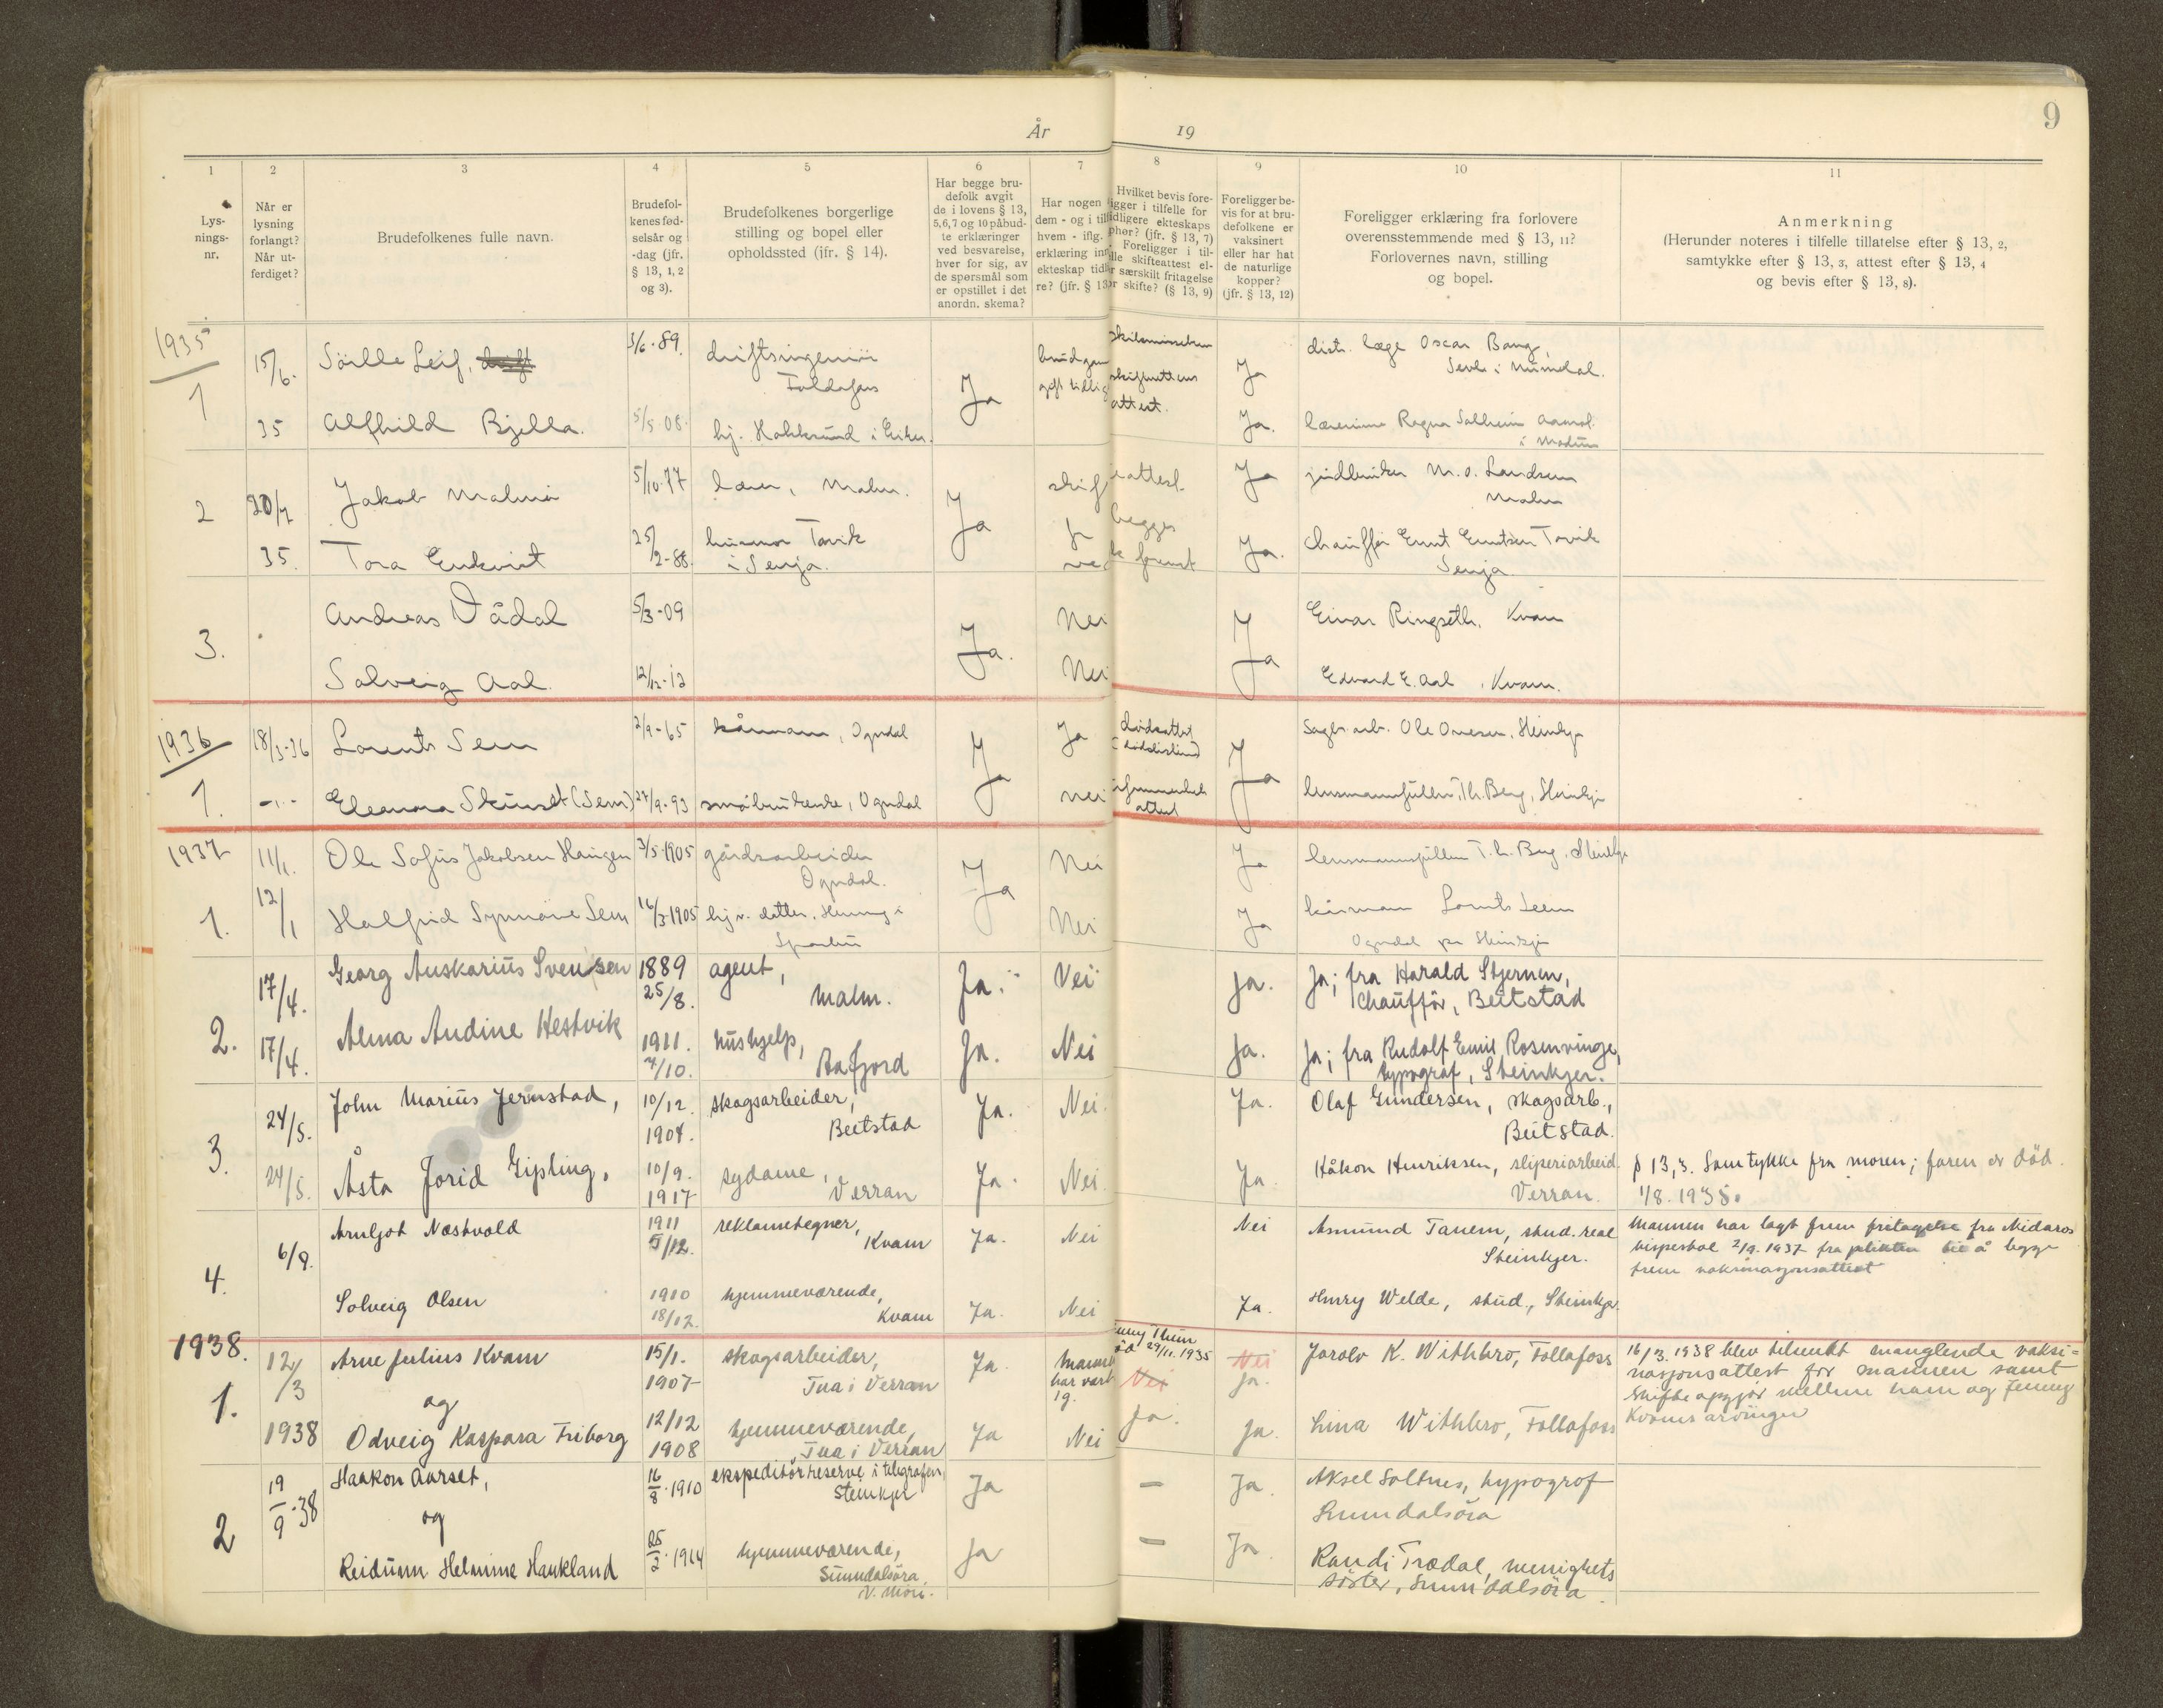 År 19
9
1
2
3
4
5
6
7
8
9
10
11
Lys-
nings-
nr.
Når er
lysning
forlangt?
Når ut-
ferdiget?
Brudefolkenes fulle navn.
Brudefol-
kenes fød-
selsår og
-dag (jfr.
§ 13, 1, 2
og 3).
Brudefolkenes borgerlige
stilling og bopel eller
opholdssted (jfr. § 14).
Har begge bru-
defolk avgit
de i lovens § 13,
5,6,7 og 10 påbud-
te erklæringer
ved besvarelse,
hver for sig, av
de spørsmål som
er opstillet i det
anordn. skema?
Har nogen
dem - og i til
hvem - iflg.
erklæring in
ekteskap tid
re? (jfr. § 13
Hvilket bevis fore-
ligger i tilfelle for
tidligere ekteskaps
ophør? (jfr. § 13, 7)
Foreligger i til-
felle skifteattest el-
ler særskilt fritagelse
for skifte? (§ 13, 9)
Foreligger be-
vis for at bru-
defolkene er
vaksinert
eller har hat
de naturlige
kopper?
(jfr. § 13, 12)
Foreligger erklæring fra forlovere
overensstemmende med § 13, 11?
Forlovernes navn, stilling
og bopel.
Anmerkning
(Herunder noteres i tilfelle tillatelse efter § 13, 2,
samtykke efter § 13, 3, attest efter § 13, 4
og bevis efter § 13, 8).
1935
1
15/6. Sörlle Leif, 3/6-89. driftsingeniör
Foldafoss
Ja
Ja
distr. læge Oscar Bang,
attest.
35 Alfhild Bjella. 5/5-08. hj. Hokksund i Eiker.
Ja.
lærerinne Ragna Solheim
i Modum
2
20/7 Jakob Malmö 5/10-77 lærer, Malm.
Ja
Ja
M. O. Landsem
Malm
35. Tora Enkvist 25/2-88. Torvik
i Senja.
begges
Ja.
Chauffør Ernt Erntsen Torvik
Senja
3.
Andreas Vådal 5/3-09
Ja.
Nei
Ja
Einar Ringseth, Kvam
Solveig Aal 12/12-12
Nei
Edvard E. Aal, Kvam.
1936
1.
18/3-36 Lorents Sem 2/9-65 kårmann, Ogndal
Ja
Ja
dødsattest
Ja
Sagbr.arb. Ole Onesen, Steinkjer
-"- Eleanora Skunset (Sem) 27/9-93 småbrukerske, Ogndal
nei
attest
lensmannsfullm. Th. Berg, Steinkjer
1937
1.
11/1. Ole Sofus Jakobsen Haugen 3/5-1905 gårdsarbeider
Ogndal.
Ja
Nei
Ja
lensmannsfullm. T. h. Berg, Steinkjer
12/1 Halfrid Synnöve Sem 16/3-1905 hjv. datter, Henning i
Sparbu
Nei
Ja
kårmann Lorents Seem
Ogndal pr Steinkjer
2.
17/4. Georg Anskarius Svensen 1889
25/8.
agent,
Malm.
Ja.
Nei
Ja.
Ja; fra Harald Stjernen,
Chauffør, Beitstad
17/4. Alma Andine Hestvik 1911.
7/10.
hushjelp,
Aafjord
Ja.
Nei
Ja.
Ja; fra Rudolf Emil Rosenvinge,
typograf, Steinkjer.
3.
24/5. John Marius Jernstad, 10/12.
1904.
skogsarbeider,
Beitstad
Ja.
Nei.
Ja.
Olaf Gundersen, skogsarb.,
Beitstad.
24/5. Åsta Jorid Gipling, 10/9.
1917
sydame,
Verran
Ja.
Nei.
Ja.
Håkon Henriksen, sliperiarbeid.
Verran.
§ 13,3. Samtykke fra moren; faren er død
1/8. 1935.
4.
6/9. Arnljot Næstvold 1911
5/12.
reklametegner,
Kvam
Ja.
Nei
Nei
Asmund Tanem, stud. real
Steinkjer.
Mannen har lagt frem fritagelse fra Nidaros
bispestol 2/9. 1937 fra plikten til å legge
frem vaksinasjonsattest
Solveig Olsen 1910
18/12.
hjemmeværende,
Kvam
Ja.
Nei
Ja.
Henry Welde, stud., Steinkjer.
1938.
1.
12/3
1938
Arne Julius Kvam
og
15/1.
1907
skogsarbeider,
Tua i Verran
Ja.
Mannen
har vært
1 g.
død 29/11. 1935
Nei
Ja.
Nei
Ja.
Jarolv K. Withbro, Follafoss
16/3. 1938 blev tilsendt manglende vaksi=
nasjonsattest for mannen samt
skifteopgjør mellem ham og Jenny
Kvams arvinger
Odveig Kaspara Friborg 12/12
1908
hjemmeværende,
Tua i Verran
Ja
Nei
Ja.
Lina Withbro, Follafoss
2
19/9.38
Haakon Aarset,
og
16/8.1910
ekspeditörreserve i telegrafen,
Steinkjer
Ja
—
Ja.
Aksel Soltnes, typograf
Sunndalsöra
Reidunn Helmine Haukland
25/2.1914
hjemmeværende,
Sunndalsöra,
N. Möre.
Ja
—
Ja.
Randi Trædal, menighets
söster, Sunndalsöra.